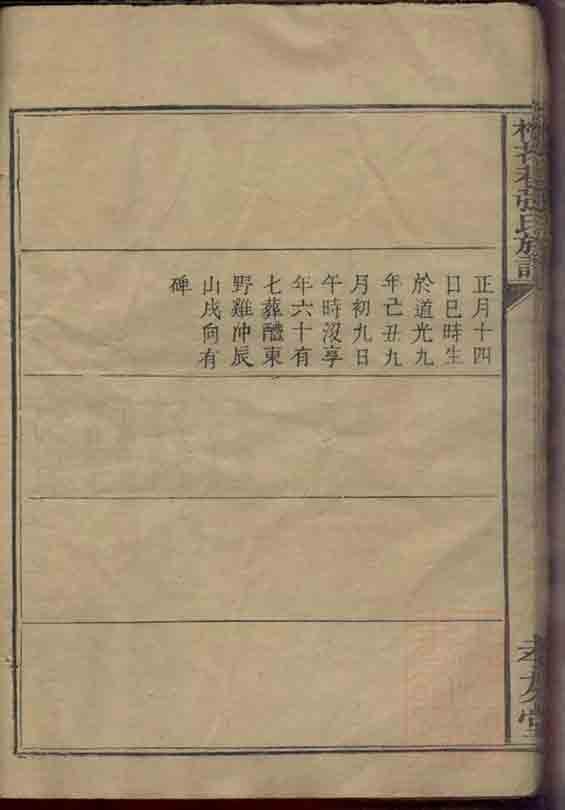 張氏族譜
孝友堂
正月十四
日巳時生
於道光九
年己丑九
月初九日
午時沒享
年六十有
七葬醴東
野雞冲辰
山戌向有
碑